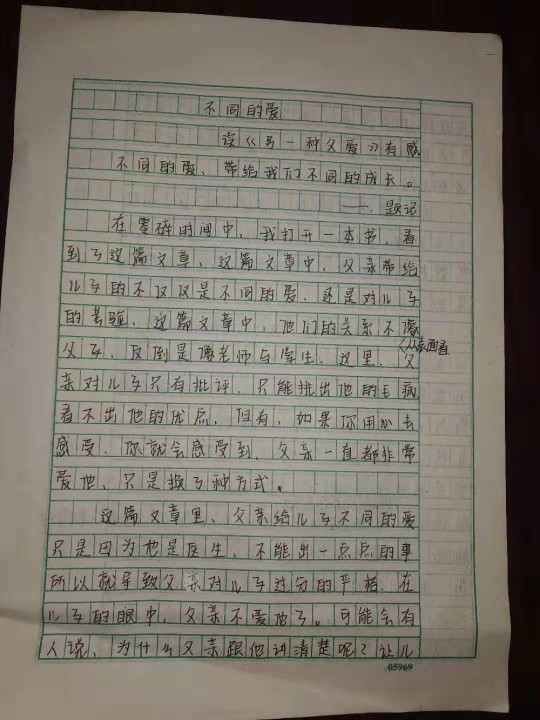 不同的爱
读《另一种父爱》有感
不同的�、带给我们不同的成长。
——题记
在零碎时间中、我打开一本书、看
到了这篇文章、这篇文章中、父亲带给
儿子的不仅仅是不同的爱、还是对儿子
的考验、这篇文章中、他们的关系不像
(从表面看
父子、反倒是像老师与学生、这里、父
亲对儿子只有批评、只能挑出他的毛病
看不出他的优点、但有、如果你用心去
感受、你就会感受到、父亲一直都非常
爱他、只是换了种方式。
这篇文章里、父亲给儿子不同的爱
只是因为他是医生、不能出一点点的事
所以就导致父亲对儿子过分的严格、在
儿子的眼中、父亲不爱他了。可能会有
人说、为什么父亲跟他讲清楚呢?让儿
05969